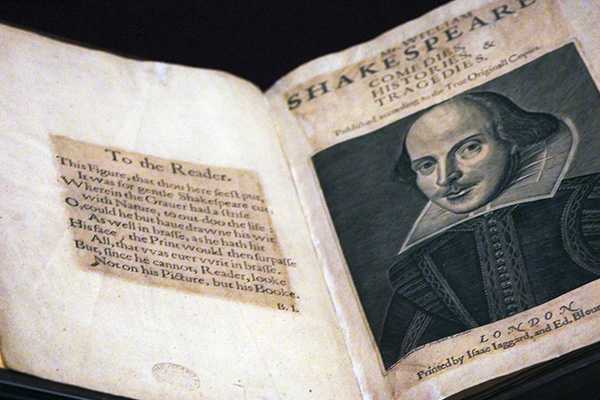 To the Reader.
This Figure, that thou here ſeeſt put,
It was for gentle Shakeſpeare cut;
Wherein the Grauer had a ſtrife
with Nature, to out-doo the life:
O, could he but haue drawne his wit
As well in braſſe, as he hath hit
His face; the Print would then ſurpaſſe
All, that vvas euer vvrit in braſſe.
But, ſince he cannot, Reader, looke
Not on his Picture, but his Booke.
B. I.
Mr. WILLIAM
SHAKESPEARE
COMEDIES,
HISTORIES, &
TRAGEDIES.
Publiſhed according to the True Originall Copies.
LONDON
Printed by Iſaac Iaggard, and Ed. Bloun